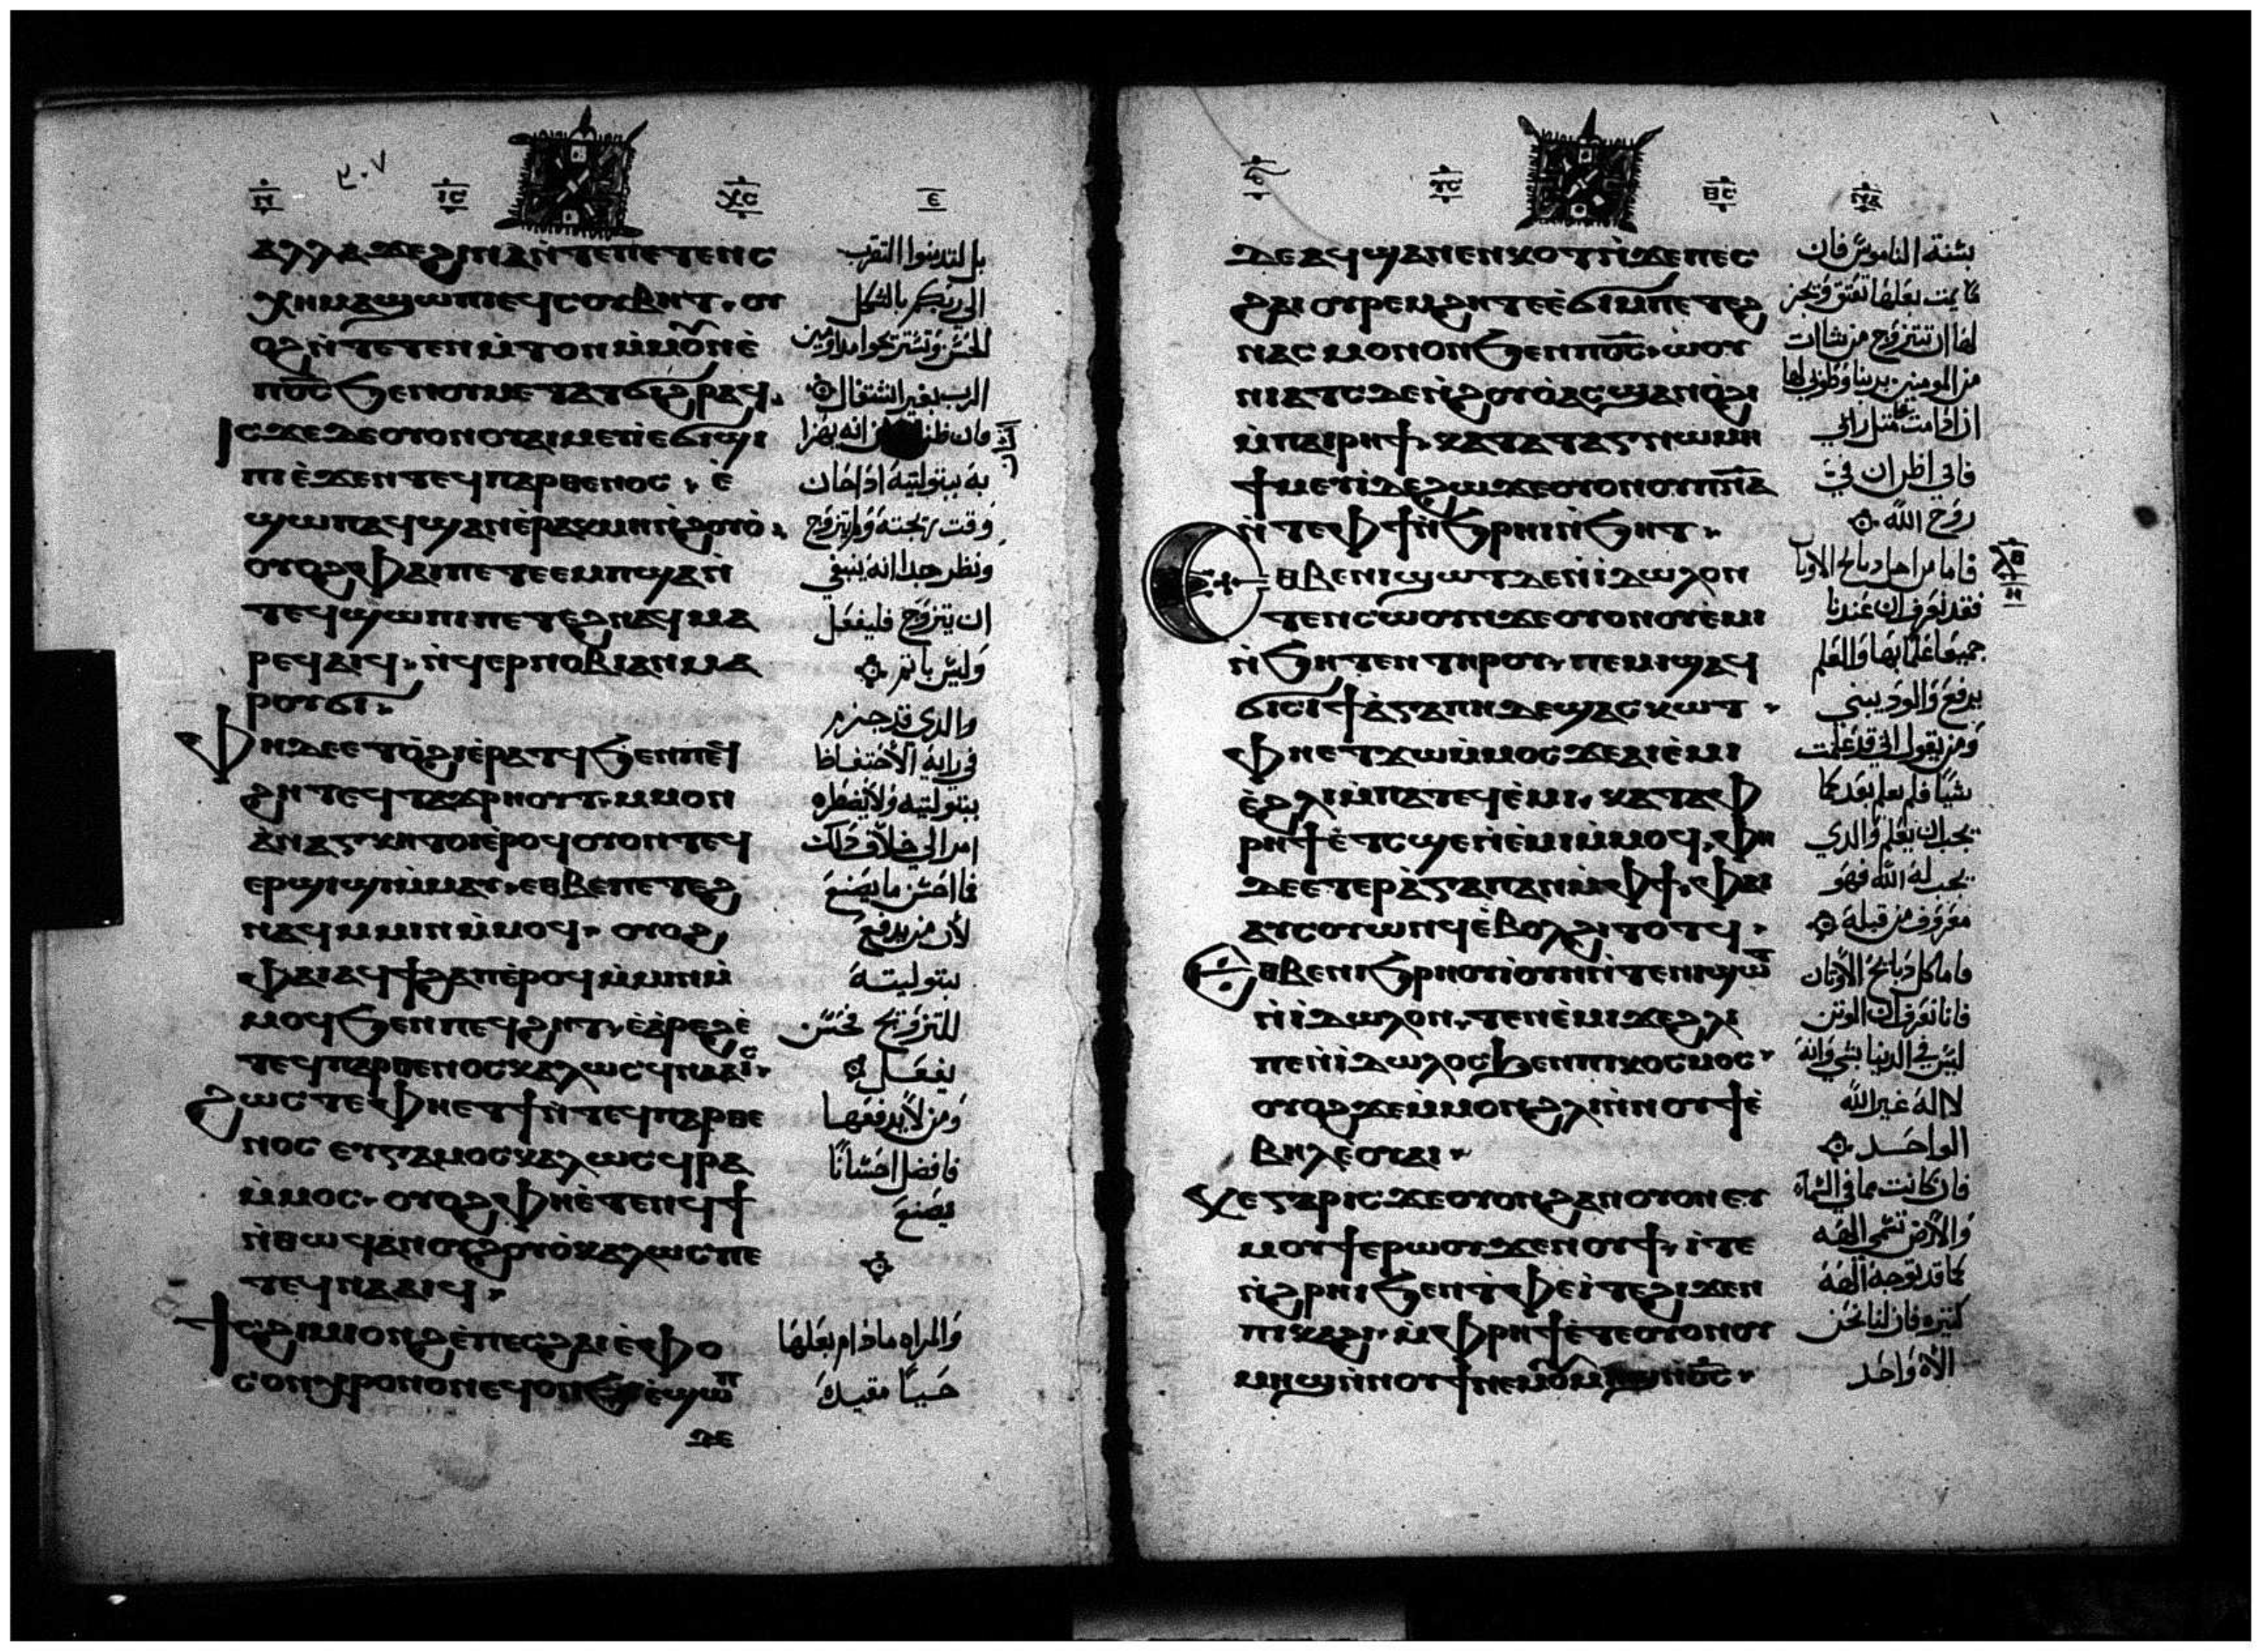 ⲓ̅ⲥ̅
ⲭ̅ⲥ̅
ⲁⲗⲗⲁϫⲉϩⲓⲛⲁⲛ̀ⲧⲉⲡⲉⲧⲉⲛⲥ
ⲭⲏⲙⲁϣⲱⲡⲓⲉϥⲥⲟⲩⲃⲏⲧ. ⲟⲩ
ⲟϩⲛ̀ⲧⲉⲧⲉⲛⲙ̀ⲧⲟⲛⲙ̀ⲙⲟ̅ⲛⲉ̀
ⲡⲟ̅ⲥ̅ϧⲉⲛⲟⲩⲙⲉⲧⲁⲧϭⲓϩⲣⲁϥ.
ⲓⲥϫⲉⲇⲉⲟⲩⲟⲛⲟⲩⲁⲓⲙⲉⲩⲓⲉϭⲓϣⲓ
ⲡⲓⲉ̀ϫⲉⲛⲧⲉϥⲡⲁⲣⲑⲉⲛⲟⲥ. ⲉ̀
ϣⲱⲡⲁϥϣⲁⲛⲉ̀ⲣⲁⲕⲙⲏⲛ̀ϩⲟⲩⲟ̀.
ⲟⲩⲟϩⲫⲁⲓⲡⲉⲧⲉⲉⲙⲡϣⲁⲛ̀
ⲧⲉϥϣⲱⲡⲓⲡⲉⲧⲉϩⲛⲁϥⲙⲁ
ⲣⲉϥⲁⲓϥ. ⲛ̀ϥⲉⲣⲛⲟⲃⲓⲁⲛⲙⲁ
ⲣⲟⲩϭⲓ.
ⲫⲏⲇⲉⲉⲧⲟ̀ϩⲓⲉ̀ⲣⲁⲧϥϧⲉⲛⲡⲉϥ
ϩⲏⲧⲉϥⲧⲁϫⲣⲏⲟⲩⲧ. ⲙⲙⲟⲛ
ⲁ̀ⲛⲁⲅⲕⲏⲧⲟⲓⲉ̀ⲣⲟϥⲟⲩⲟⲛⲧⲉϥ
ⲉⲣϣⲓϣⲓⲙ̀ⲙⲁⲩ. ⲉⲑⲃⲉⲡⲉⲧⲉϩ
ⲛⲁϥⲙⲙⲓⲛⲙ̀ⲙⲟϥ. ⲟⲩⲟϩ
ⲫⲁⲓⲁϥϯϩⲁⲡⲉ̀ⲣⲟϥⲙ̀ⲙⲓⲛⲙ̀
ⲙⲟϥϧⲉⲛⲡⲉϥϩⲏⲧ. ⲉ̀ⲁ̀ⲣⲉϩⲉ̀
ⲧⲉϥⲡⲁⲣⲑⲉⲛⲟⲥⲕⲁⲗⲱⲥϥⲛⲁⲁⲓⲥ.
ϩⲱⲥⲧⲉⲫⲏⲉⲧϯⲛ̀ⲧⲉϥⲡⲁⲣⲑⲉ
ⲛⲟⲥ ⲉⲩⲅⲁⲙⲟⲥⲕⲁⲗⲱⲥϥⲣⲁ
ⲙ̀ⲙⲟⲥ. ⲟⲩⲟϩⲫⲏⲉ̀ⲧⲉⲛϥϯ
ⲛ̀ⲑⲱϥⲁⲛⲟⲩϩⲟⲩⲟ̀ⲕⲁⲗⲱⲥⲡⲉ
ⲧⲉϥⲛⲁⲁⲓϥ.
ϯⲥϩⲓⲙⲓⲥⲟⲛϩⲉ̀ⲡⲉⲥϩⲁⲓⲉ̀ⲫⲟ
ⲥⲟⲛⲭⲣⲟⲛⲟⲛⲉϥⲟⲛϧ ⲉ̀ϣⲱⲡ
ⲇⲉ
٣٠٧
بل لتدينوا التقرب
الي ربكم بالشكل
الحسن وتستريحوا مداومين
الرب بغير اشتغال
فان ظن انه يهزا
به ببتوليته اذا حان
وقت زيجته ولم يتزوج
ونظر هذا انه ينبغي
ان يتزوج فليفعل
وليس ياثم
والذي قد جزم
في رايه الاحتفاظا
ببتوليته ولا يضطره
امر الي خلاف ذلك
فما احسن ما يصنع
لان من يدفع
بتوليته
للتزويج فحسن
يفعل
ومن لا يدفعها
فافضل احسانا
يصنع
والمراه مادام بعلها
حيا مقيده
ⲓ̅ⲥ̅
ⲇⲉⲁϥϣⲁⲛⲉⲛⲕⲟⲧⲛ̀ϫⲉⲡⲉⲥ
ϩⲁⲓ ⲟⲩⲣⲉⲙϩⲏⲧⲉⲉ̀ϭⲓⲙⲡⲉⲧⲉϩ
ⲛⲁⲥ ⲙⲟⲛⲟⲛϧⲉⲛⲡⲟ̅ⲥ̅. ⲱⲟⲩ
ⲛⲓⲁⲧⲥⲇⲉⲛ̀ϩⲟⲩⲟ̀ⲁⲥϣⲁⲛⲟ̀ϩⲓ
ⲙ̀ⲡⲁⲓⲣⲏϯ. ⲕⲁⲧⲁⲧⲁⲅⲛⲱⲙⲏ
ϯⲙⲉⲩⲓⲇⲉϩⲱϫⲉⲟⲩⲟⲛⲟⲩⲡ̅ⲛ̅ⲁ̅
ⲛ̀ⲧⲉⲫϯⲛ̀ϧⲣⲏⲓⲛ̀ϧⲏⲧ.
ⲉⲑⲃⲉⲛⲓϣⲱⲧⲇⲉⲛ̀ⲓ̀ⲇⲱⲗⲟⲛ
ⲧⲉⲛⲥⲱⲟⲩⲛϫⲉⲟⲩⲟⲛⲟⲩⲉ̀ⲙⲓ
ⲛ̀ϧⲏⲧⲉⲛⲧⲏⲣⲟⲩ. ⲡⲉⲙⲓϣⲁϥ
ϭⲓⲥⲓϯⲁ̀ⲅⲁⲡⲏⲇⲉϣⲁⲥⲕⲱⲧ.
ⲫⲏⲉⲧϫⲱⲙ̀ⲙⲟⲥϫⲉⲁⲓⲉ̀ⲙⲓ
ⲉ̀ϩⲗⲓⲙⲡⲁⲧⲉϥⲉ̀ⲙⲓ. ⲕⲁⲧⲁⲫ
ⲣⲏϯⲉ̀ⲧⲥϣⲉⲛ̀ⲉ̀ⲙⲓⲙ̀ⲙⲟϥ. ⲫⲏ
ⲇⲉⲉⲧⲉⲣⲁ̀ⲅⲁⲡⲁⲛⲙ̀ⲫϯ. ⲫⲁⲓ
ⲁⲩⲥⲟⲩⲱⲛϥⲉ̀ⲃⲟⲗϩⲓⲧⲟⲧϥ.
ⲉⲑⲃⲉⲛⲓϧⲣⲏⲟⲩⲓⲟⲩⲛⲛ̀ⲧⲉⲛⲓϣⲱⲧ
ⲛ̀ⲓ̀ⲇⲱⲗⲟⲛ. ⲧⲉⲛⲉ̀ⲙⲓϫⲉϩⲗⲓ
ⲡⲉⲛ̀ⲓ̀ⲇⲱⲗⲟⲥϧⲉⲛⲡⲓⲕⲟⲥⲙⲟⲥ.
ⲟⲩⲟϩϫⲉⲙ̀ⲙⲟⲛϩⲗⲓⲛ̀ⲛⲟⲩϯⲉ̀
ⲃⲏⲗⲉ̀ⲟⲩⲁⲓ.
ⲕⲉⲅⲁⲣⲓⲥϫⲉⲟⲩⲟⲛϩⲁⲛⲟⲩⲟⲛⲉⲩ
ⲙⲟⲩϯⲉⲣⲱⲟⲩϫⲉⲛⲟⲩϯ. ⲓ̀ⲧⲉ
ⲛ̀ϩⲣⲏⲓϧⲉⲛⲧ̀ⲫⲉⲓ̀ⲧⲉϩⲓϫⲉⲛ
ⲡⲓⲕⲁϩⲓ. ⲙ̀ⲫⲣⲏϯⲉ̀ⲧⲉⲟⲩⲟⲛⲟⲩ
ⲙⲏϣⲛ̀ⲛⲟⲩϯ
بسنة الناموس فان
مات بعلها تعتق ويجز
لها ان تتزوج من شات
من المومنين بربنا وطوبي لها
ان اقامت مثل رايي
فاني اظن ان في
روح الله
فاما من اجل دبايح الاوثان
فقد نعرف ان عندنا
جميعا علما بها والعلم
يرفع والود يبني
ومن يقول اني قد علمت
شيا فلم يعلم بعد كما
يجب ان يعلم والذي
يحب له الله فهو
معروف من قبله
فاما كل دبايح الاوثان
فانا نعرف ان الوثن
ليس في الدنيا بشي وانه
لا اله غير الله
الواحد
فان كانت مما في السماء
والارض تسمي الهه
كما قد توجد الهه
كثيره فان لنا نحن
الاه واحد